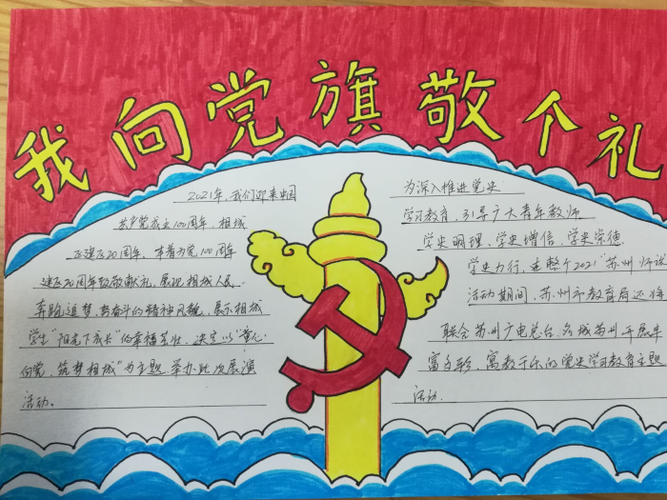 我向党旗敬个礼
2021年,我们迎来中国
共产党成立100周年,相城
区建区20周年,本着为党100周年
建区20周年致敬献礼,展现相城人民
奔跑追梦,奋斗的精神风貌,展示相城
学生"阳光下成长"的幸福生活,决定以"童心
向党,筑梦相城"为主题,举办此次展演
活动。
为深入推进党史
学习教育,引导广大青年教师
学史明理,学史增信,学史崇德
学史力行,在整个2021"苏州师
活动期间,苏州市教育局还将
联合苏州广电总台,名城苏州开展丰
富多彩,寓教于乐的党史学习教育主题
活动.